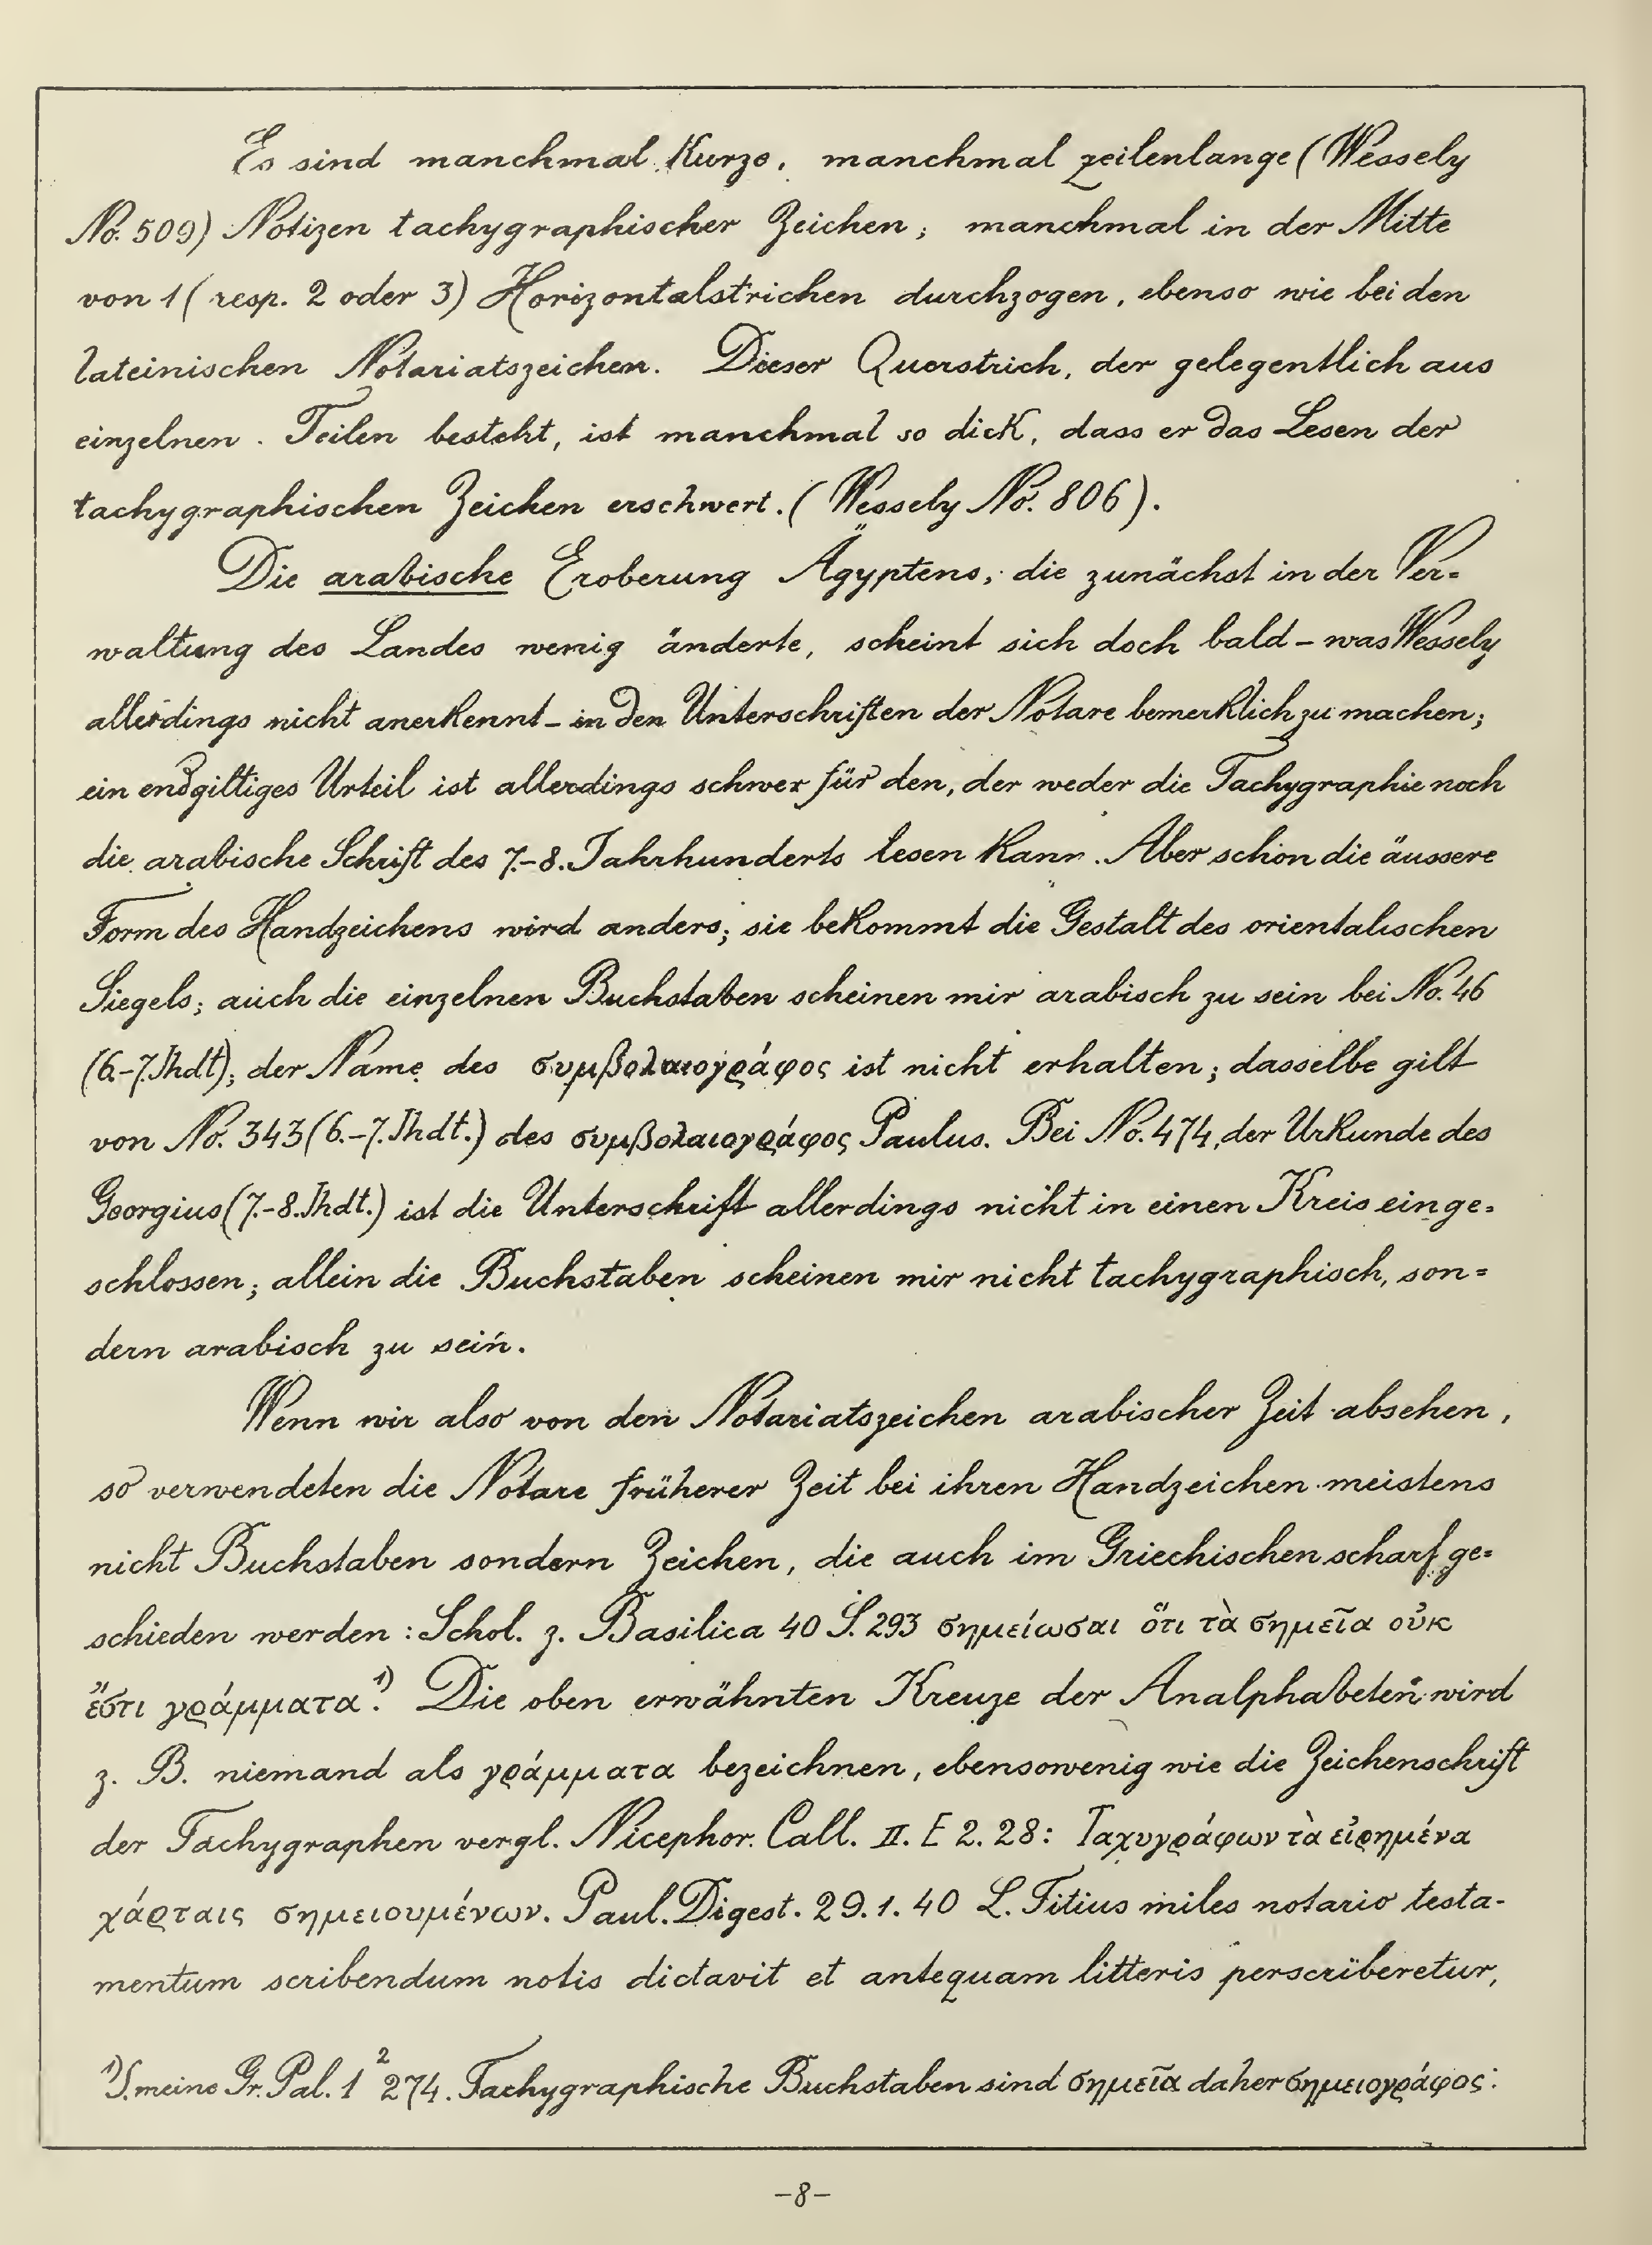 Es sind manchmal Kurze, manchmal zeilenlange (Wessely
No. 509) Notizen tachygraphischer Zeichen; manchmal in der Mitte
von 1 (resp. 2 oder 3) Horizontalstrichen durchzogen, ebenso wie bei den
lateinischen Notariatszeichen. Dieser Querstrich, der gelegentlich aus
einzelnen. Teilen besteht, ist manchmal so dick, dass er das Lesen der
tachygraphischen Zeichen erschwert. (Wessely No. 806).
Die arabische Eroberung Ägyptens, die zunächst in der Ver=
waltung des Landes wenig änderte, scheint sich doch bald – was Wessely
allerdings nicht anerkennt – in den Unterschriften der Notare bemerklich zu machen;
ein endgiltiges Urteil ist allerdings schwer für den, der weder die Tachygraphie noch
die arabische Schrift des 7.–8. Jahrhunderts lesen kann. Aber schon die äussere
Form des Handzeichens wird anders; sie bekommt die Gestalt des orientalischen
Siegels; auch die einzelnen Buchstaben scheinen mir arabisch zu sein bei No. 46
(6.–7. Jhdt); der Name des συμβολαιογράφος ist nicht erhalten; dasselbe gilt
von No. 343 (6.–7. Jhdt.) des συμβολαιογράφος Paulus. Bei No. 474, der Urkunde des
Georgius (7.–8. Jhdt.) ist die Unterschrift allerdings nicht in einen Kreis einge=
schlossen; allein die Buchstaben scheinen mir nicht tachygraphisch, son=
dern arabisch zu sein.
Wenn wir also von den Notariatszeichen arabischer Zeit absehen,
so verwendeten die Notare früherer Zeit bei ihren Handzeichen meistens
nicht Buchstaben sondern Zeichen, die auch im Griechischen scharf ge=
schieden werden: Schol. z. Basilica 40 S. 293 σημείωσαι ὅτι τὰ σημεῖα οὐκ
ἔστι γράμματα 1). Die oben erwähnten Kreuze der Analphabeten wird
z. B. niemand als γράμματα bezeichnen, ebensowenig wie die Zeichenschrift
der Tachygraphen vergl. Nicephor. Call. II. E 2. 28: Ταχυγράφων τὰ εἰρημένα
χάρταις σημειουμένων. Paul. Digest. 29. 1. 40 L. Titius miles notario testa-
mentum scribendum notis dictavit et antequam litteris perscriberetur,
1) S. meine Gr. Pal. 1² 274. Tachygraphische Buchstaben sind σημεῖα daher σημειογράφος.
–8–